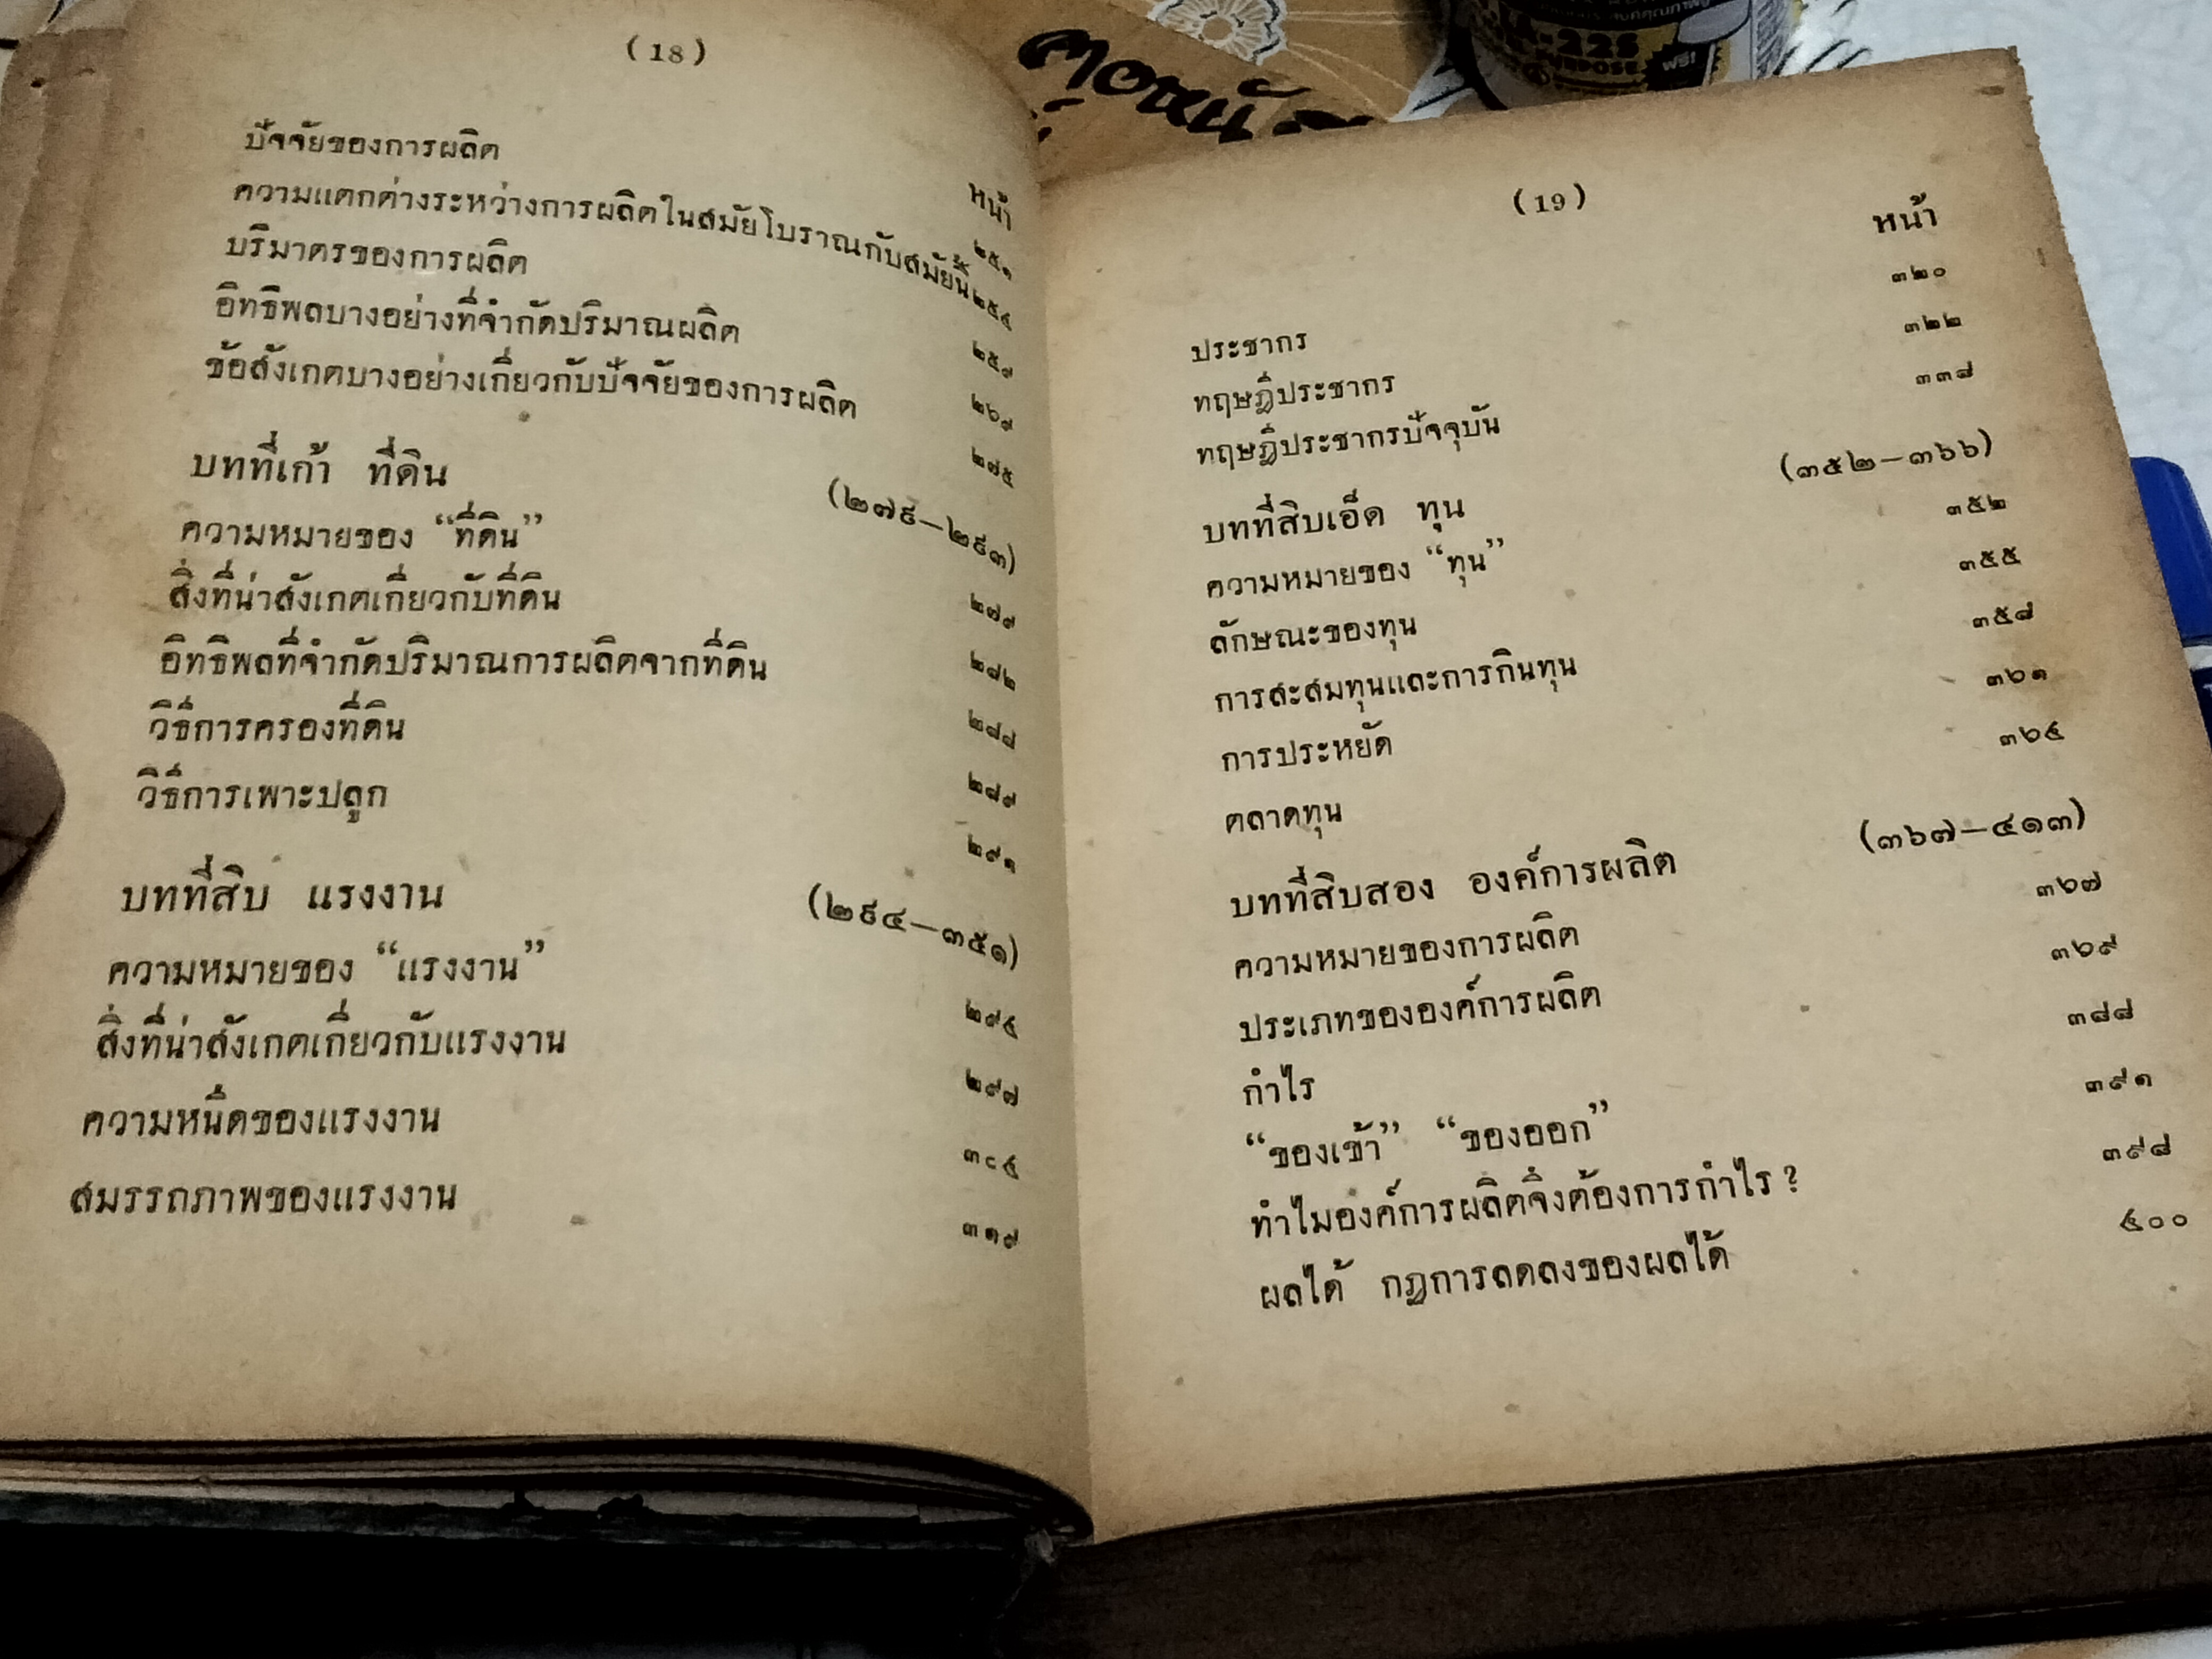 (18)
หน้า
ปัจจัยของการผลิต ๒๕๑
ความแตกต่างระหว่างการผลิตในสมัยโบราณกับสมัยนี้ ๒๕๔
บริมาตรของการผลิต ๒๕๙
อิทธิพลบางอย่างที่จำกัดปริมาณผลิต ๒๖๙
ข้อสังเกตบางอย่างเกี่ยวกับปัจจัยของการผลิต ๒๗๕
บทที่เก้า ที่ดิน (๒๗๙—๒๙๓)
ความหมายของ “ที่ดิน” ๒๗๙
สิ่งที่น่าสังเกตเกี่ยวกับที่ดิน ๒๘๒
อิทธิพลที่จำกัดปริมาณการผลิตจากที่ดิน ๒๘๘
วิธีการครองที่ดิน ๒๘๙
วิธีการเพาะปลูก ๒๙๑
บทที่สิบ แรงงาน (๒๙๔—๓๕๑)
ความหมายของ “แรงงาน” ๒๙๔
สิ่งที่น่าสังเกตเกี่ยวกับแรงงาน ๒๙๗
ความหนืดของแรงงาน ๓๐๔
สมรรถภาพของแรงงาน ๓๑๙
(19)
หน้า
ประชากร ๓๒๐
ทฤษฎีประชากร ๓๒๒
ทฤษฎีประชากรปัจจุบัน ๓๓๘
บทที่สิบเอ็ด ทุน (๓๕๒—๓๖๖)
ความหมายของ “ทุน” ๓๕๒
ลักษณะของทุน ๓๕๕
การสะสมทุนและการกินทุน ๓๕๘
การประหยัด ๓๖๑
ตลาดทุน ๓๖๔
บทที่สิบสอง องค์การผลิต (๓๖๗—๔๑๓)
ความหมายของการผลิต ๓๖๗
ประเภทขององค์การผลิต ๓๖๙
กำไร ๓๘๘
“ของเข้า” “ของออก” ๓๙๑
ทำไมองค์การผลิตจึงต้องการกำไร ? ๓๙๘
ผลได้ กฎการลดลงของผลได้ ๔๐๐
ฟรี!